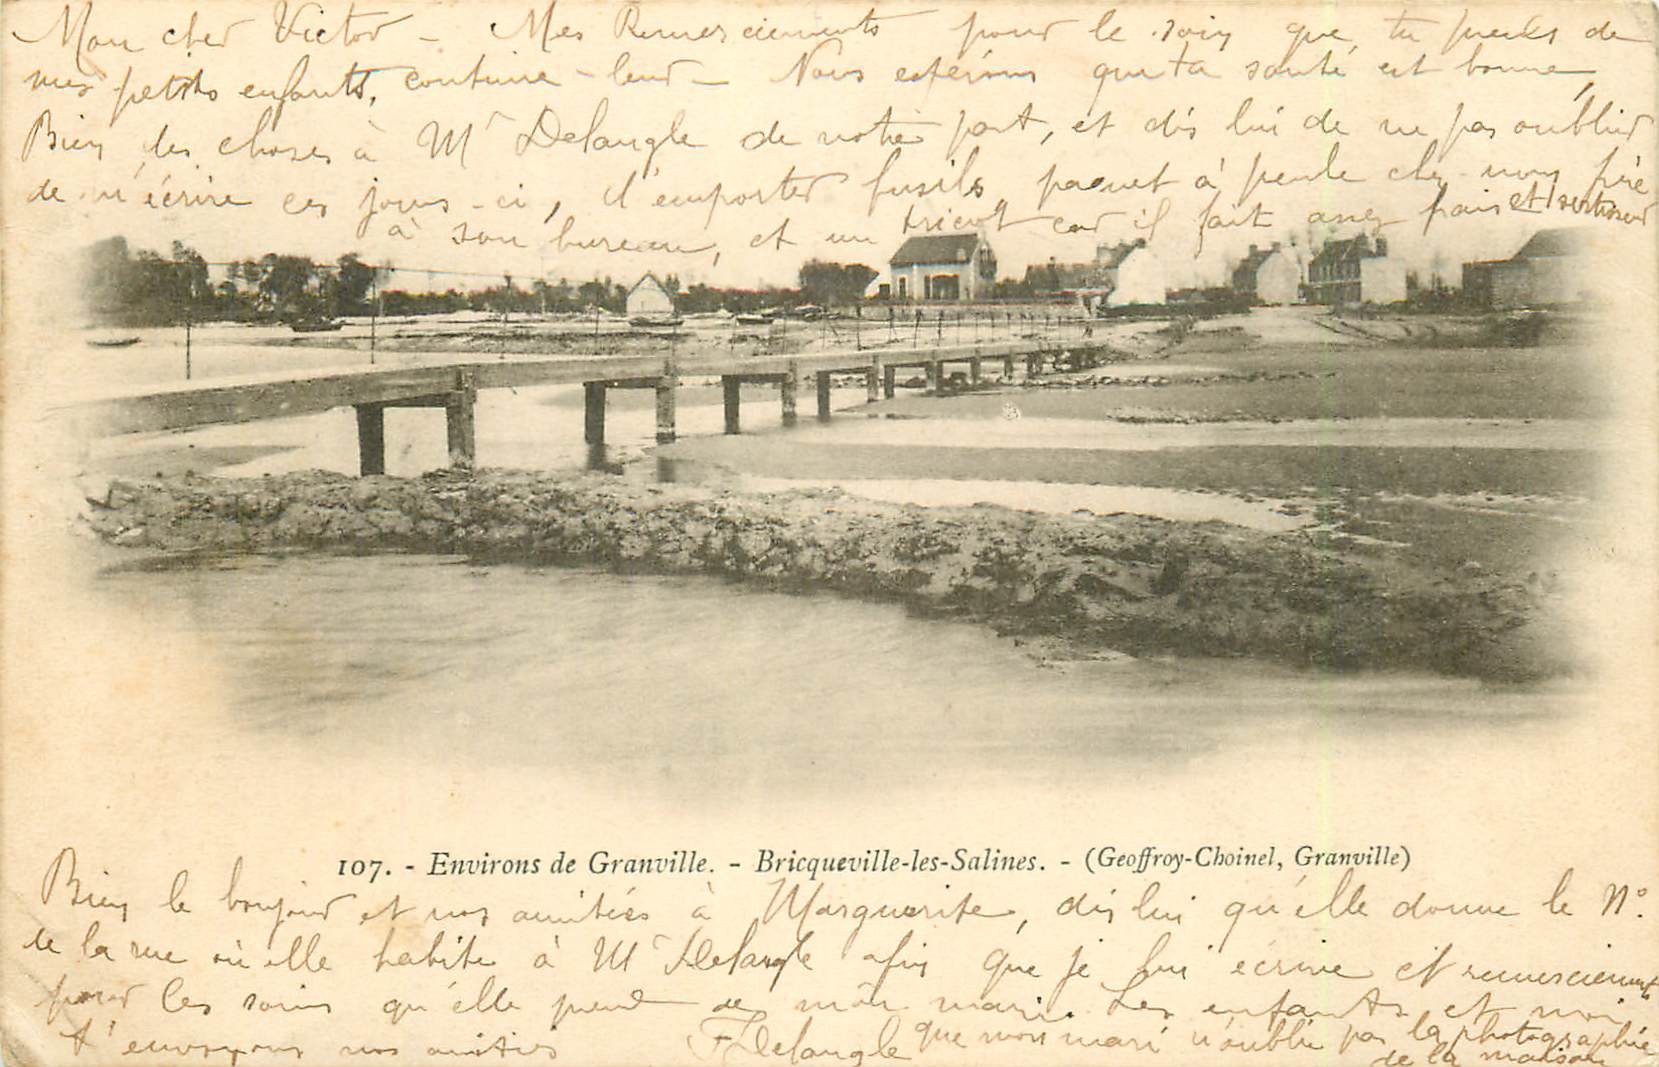 Mon cher Victor - Mes Remerciements pour le soin que tu prends de
mes petits enfants, continue-leur - Nous espérons que ta santé est bonne,
Bien des choses à Mr Delangle de notre part, et dis lui de ne pas oublier
de m'écrire ces jours-ci, d'emporter fusils, paquet à pendre chez nous père
à son bureau, et un tricot car il fait assez frais et surtout
107. - Environs de Granville. - Bricqueville-les-Salines. - (Geoffroy-Choinel, Granville)
Bien le bonjour et nos amitiés à Marguerite, dis lui qu'elle donne le N°.
de la rue où elle habite à Mr Delangle afin que je lui écrive et remerciements
pour les soins qu'elle prend de mon mari. Les enfants et moi
t'envoyons nos amitiés F Delangle que mon mari n'oublie pas la photographie
de la maison